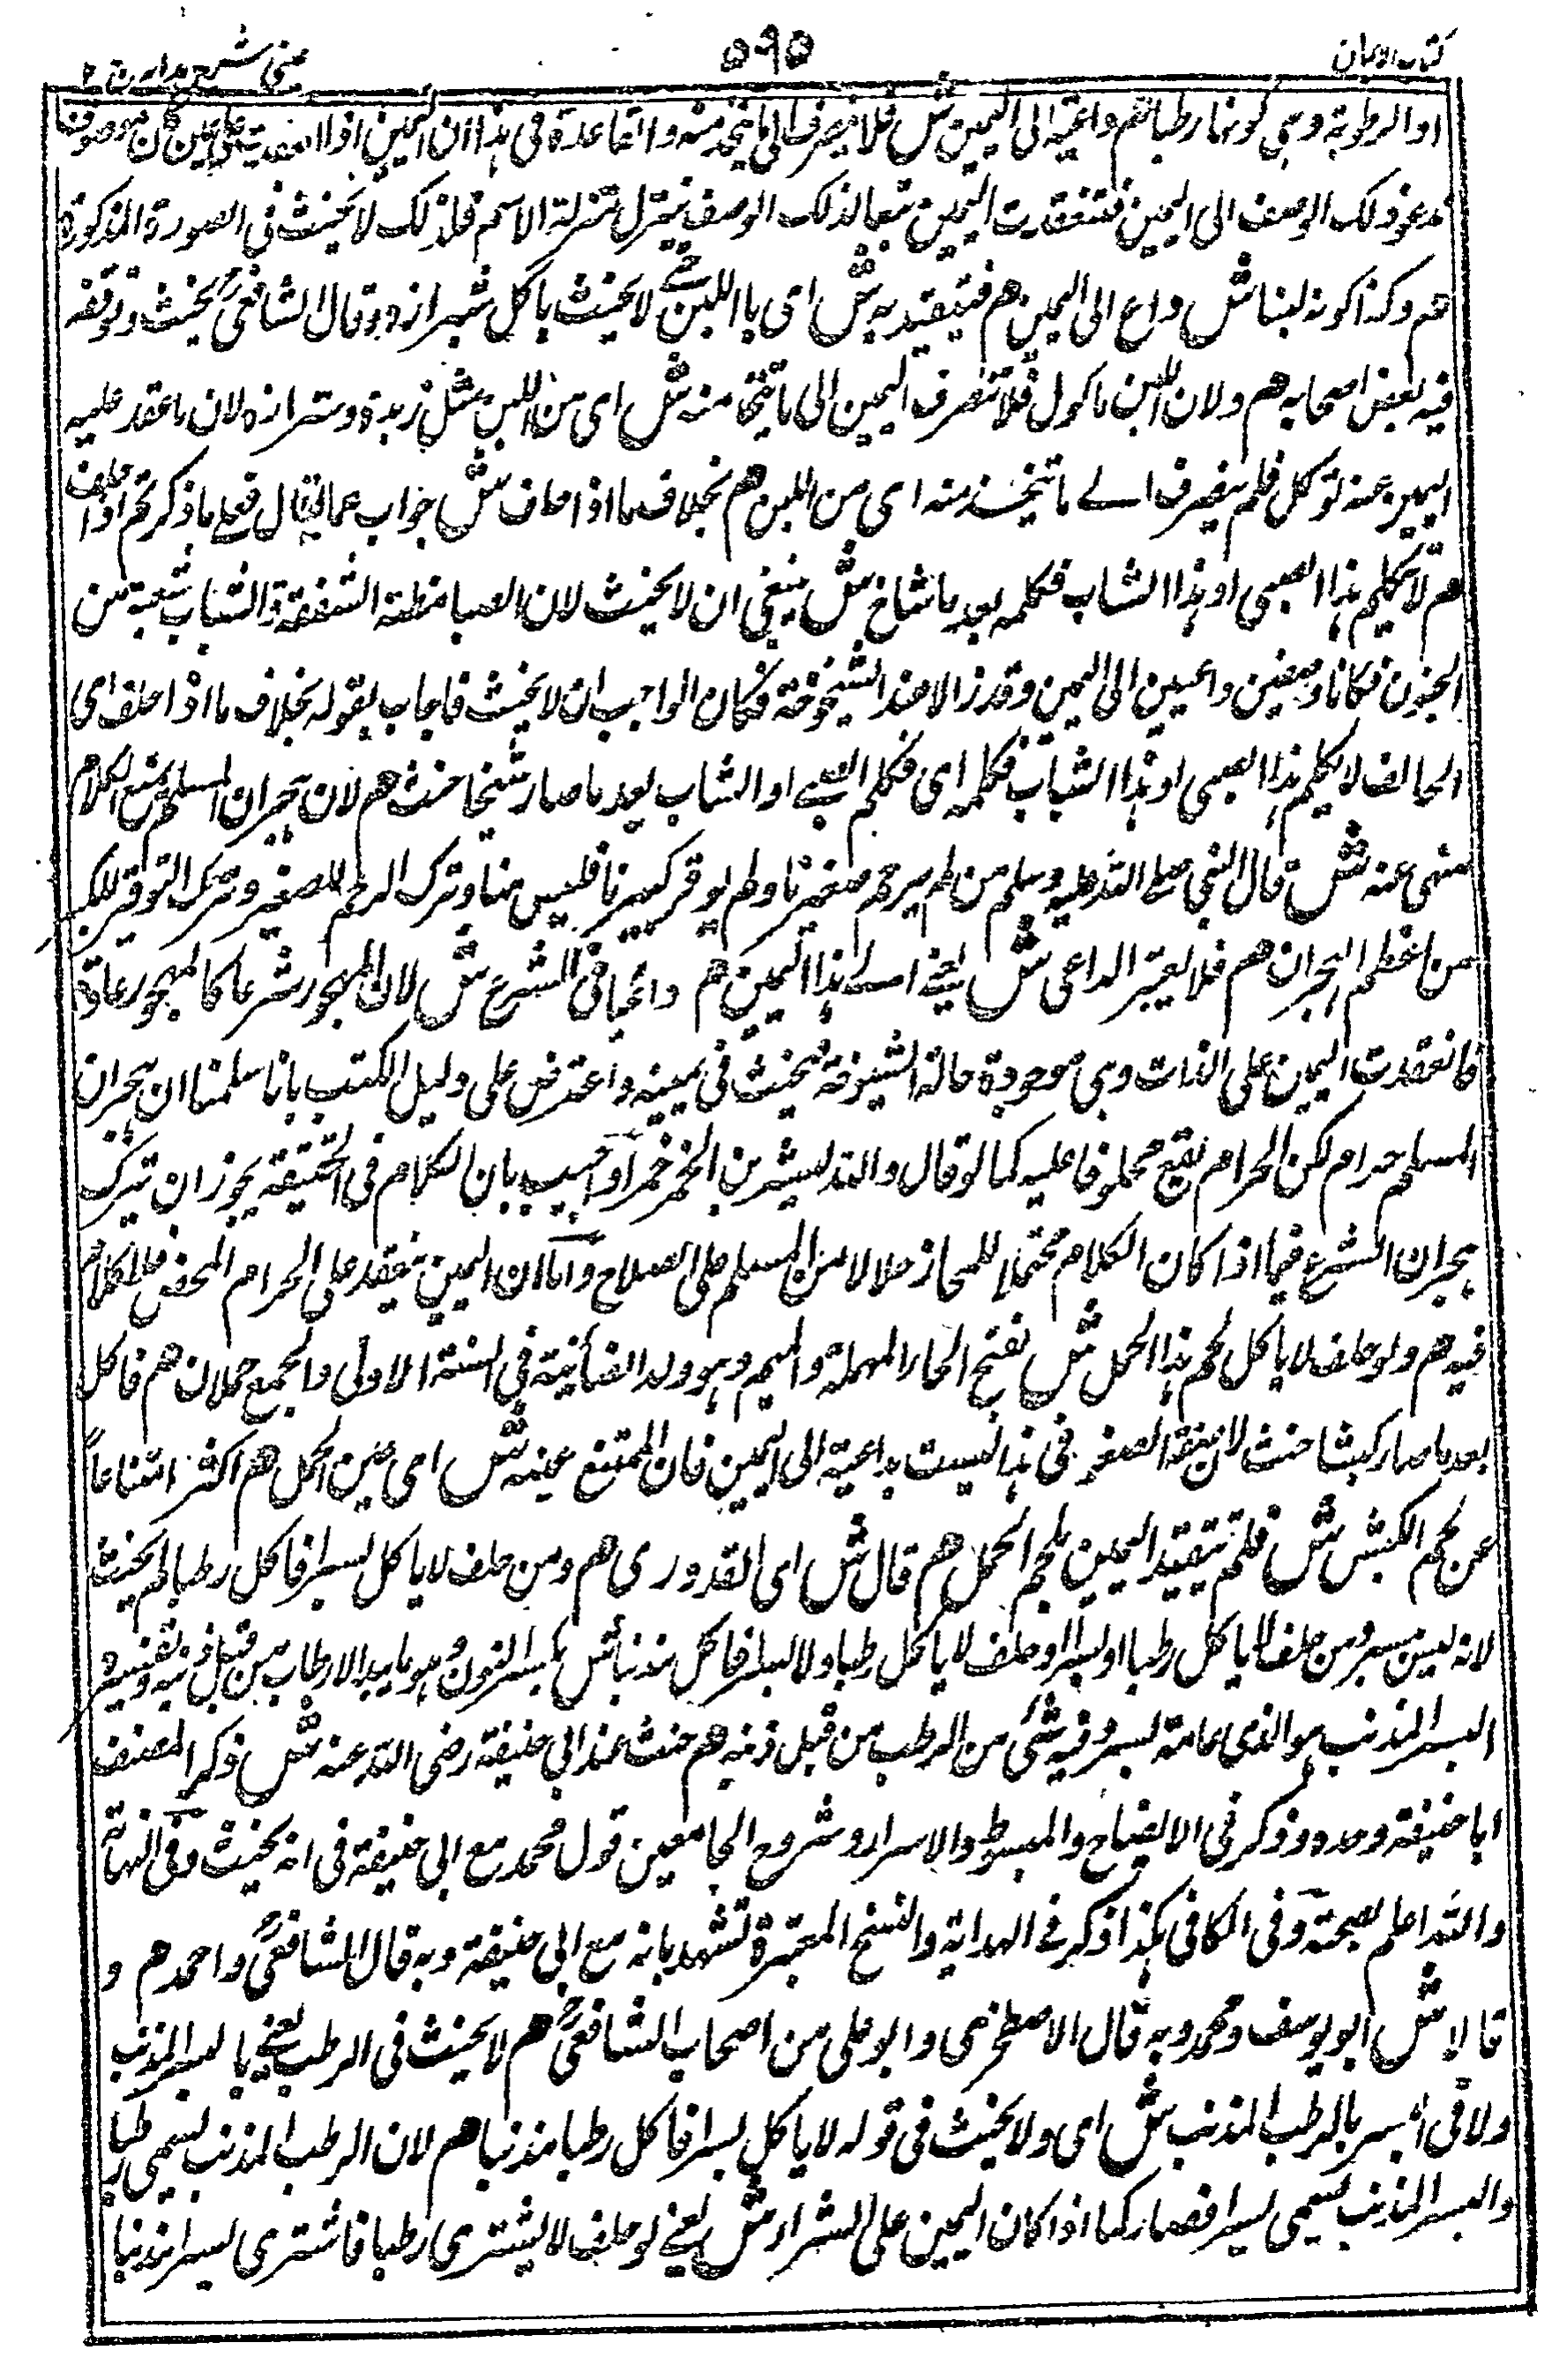 كتاب الايمان
۵۹۵
عينى شرح هدايه ج ٢
او الرطوبة وهي كونها رطبا هم داعية الى اليمين ش فلا ينصرف الى ما يتخذ منه والقاعدة في هذا ان اليمين اذا انعقدت على عين كان موصوفا
يدعو ذلك الوصف الى اليمين فتنعقد اليمين تبعا لذلك الوصف فيتزل منزلة الاسم فلذلك لا يحنث في الصورة المذكورة
هم وكذا كونه لبنا ش داع الى اليمين هم فيتقيد به ش اى باللبن حتى لا يحنث باكل شيرازه وقال الشافعي يحنث وتوقفه
فيه بعض اصحابه هم ولان اللبن ماكول فلا تنصرف اليمين الى ما يتخذ منه ش اى من اللبن مثل زبدة وشيرازه لان ما عقد عليه
اليمين عنه توكل فلم ينصرف الے ما يتخذ منه اى من اللبن هم بخلاف ما اذا حلف ش جواب عما يقال فعلى ما ذكرتم اذا حلف
هم لا يكلم هذا الصبى او هذا الشاب فكلمه بعد ما شاخ ش ينبغي ان لا يحنث لان الصبا مظنة الشفقة والشباب شعبة من
الجنون فكانا وصفين داعيين الى اليمين وقد زالا عند الشيخوخة فكان الواجب ان لا يحنث فاجاب بقوله بخلاف ما اذا حلف اى
الحالف لا يكلم هذا الصبى او هذا الشاب فكلمه اى فكلم الصبے او الشاب بعد ما صار شيخا حنث هم لان هجران المسلم بمنع الكلام
منهى عنه ش قال النبى صلى الله عليه وسلم من لم يرحم صغيرنا ولم يوقر كبيرنا فليس منا وترك الرحم للصغير وترك التوقير للكبير
من اعظم الهجران هم فلا يعتبر الداعى ش يعنے الے هذا اليمين هم داعيا فى الشرع ش لان المهجور شرعا كالمهجور عادة
فانعقدت اليمين على الذات وهي موجودة حالة الشيخوخة فيحنث في يمينه واعترض على دليل الكتب بانا سلمنا ان هجران
المسلم حرام لكن الحرام يقع محلوفا عليه كما لو قال والله ليشربن الخمر خمرا واجيب بان الكلام فى الحقيقة يجوز ان تترك
بهجران الشرع فيما اذا كان الكلام محتملا للمجاز حملا لامر المسلم على الصلاح واما ان اليمين تنعقد على الحرام المحض فلا كلام
فيه هم ولو حلف لا ياكل لحم هذا الحمل ش بفتح الحاء المهملة والميم وهو ولد الضأنية في السنة الاولى والجمع حملان هم فاكل
بعد ما صار كبشا حنث لان صفة الصغر فى هذا ليست بداعية الى اليمين فان الممتنع عنه ش اى عين الحمل هم اكثر امتناعا
عن لحم الكبش ش فلم تتقيد اليمين بلحم الحمل هم قال ش اى القدورى هم ومن حلف لا ياكل بسرا فاكل رطبا لم يحنث
لانه ليس ببسر ومن حلف لا ياكل رطبا او بسرا او حلف لا ياكل رطبا ولا بسرا فاكل مذنبا ش بكسر النون وهو ما بدا الارطاب من قبل ذنبه وتفسير
البسر المذنب هو الذى عامته بسر وفيه شئ من الرطب من قبل ذنبه هم حنث عند ابي حنيفة رضى الله عنه ش ذكر المصنف
ابا حنيفة وحده وذكر في الايضاح والمبسوط والاسرار وشروح الجامعين قول محمد مع ابي حنيفة فى انه يحنث وفى النهاية
والله اعلم بصحته وفى الكافى هكذا ذكر فے الهداية والنسخ المعتبرة تشهد بانه مع ابي حنيفة وبه قال الشافعي واحمد هم و
قالا ش ابو يوسف ومحمد وبه قال الاصطخرى وابو على من اصحاب الشافعي هم لا يحنث فى الرطب يعنے بالبسر المذنب
ولا فى البسر بالرطب المذنب ش اى ولا يحنث فى قوله لا ياكل بسرا فاكل رطبا مذنبا هم لان الرطب المذنب يسمى رطبا
والبسر المذنب يسمى بسرا فصار كما اذا كان اليمين على الشراء ش يعنے لو حلف لا يشترى رطبا فاشترى بسرا مذنبا